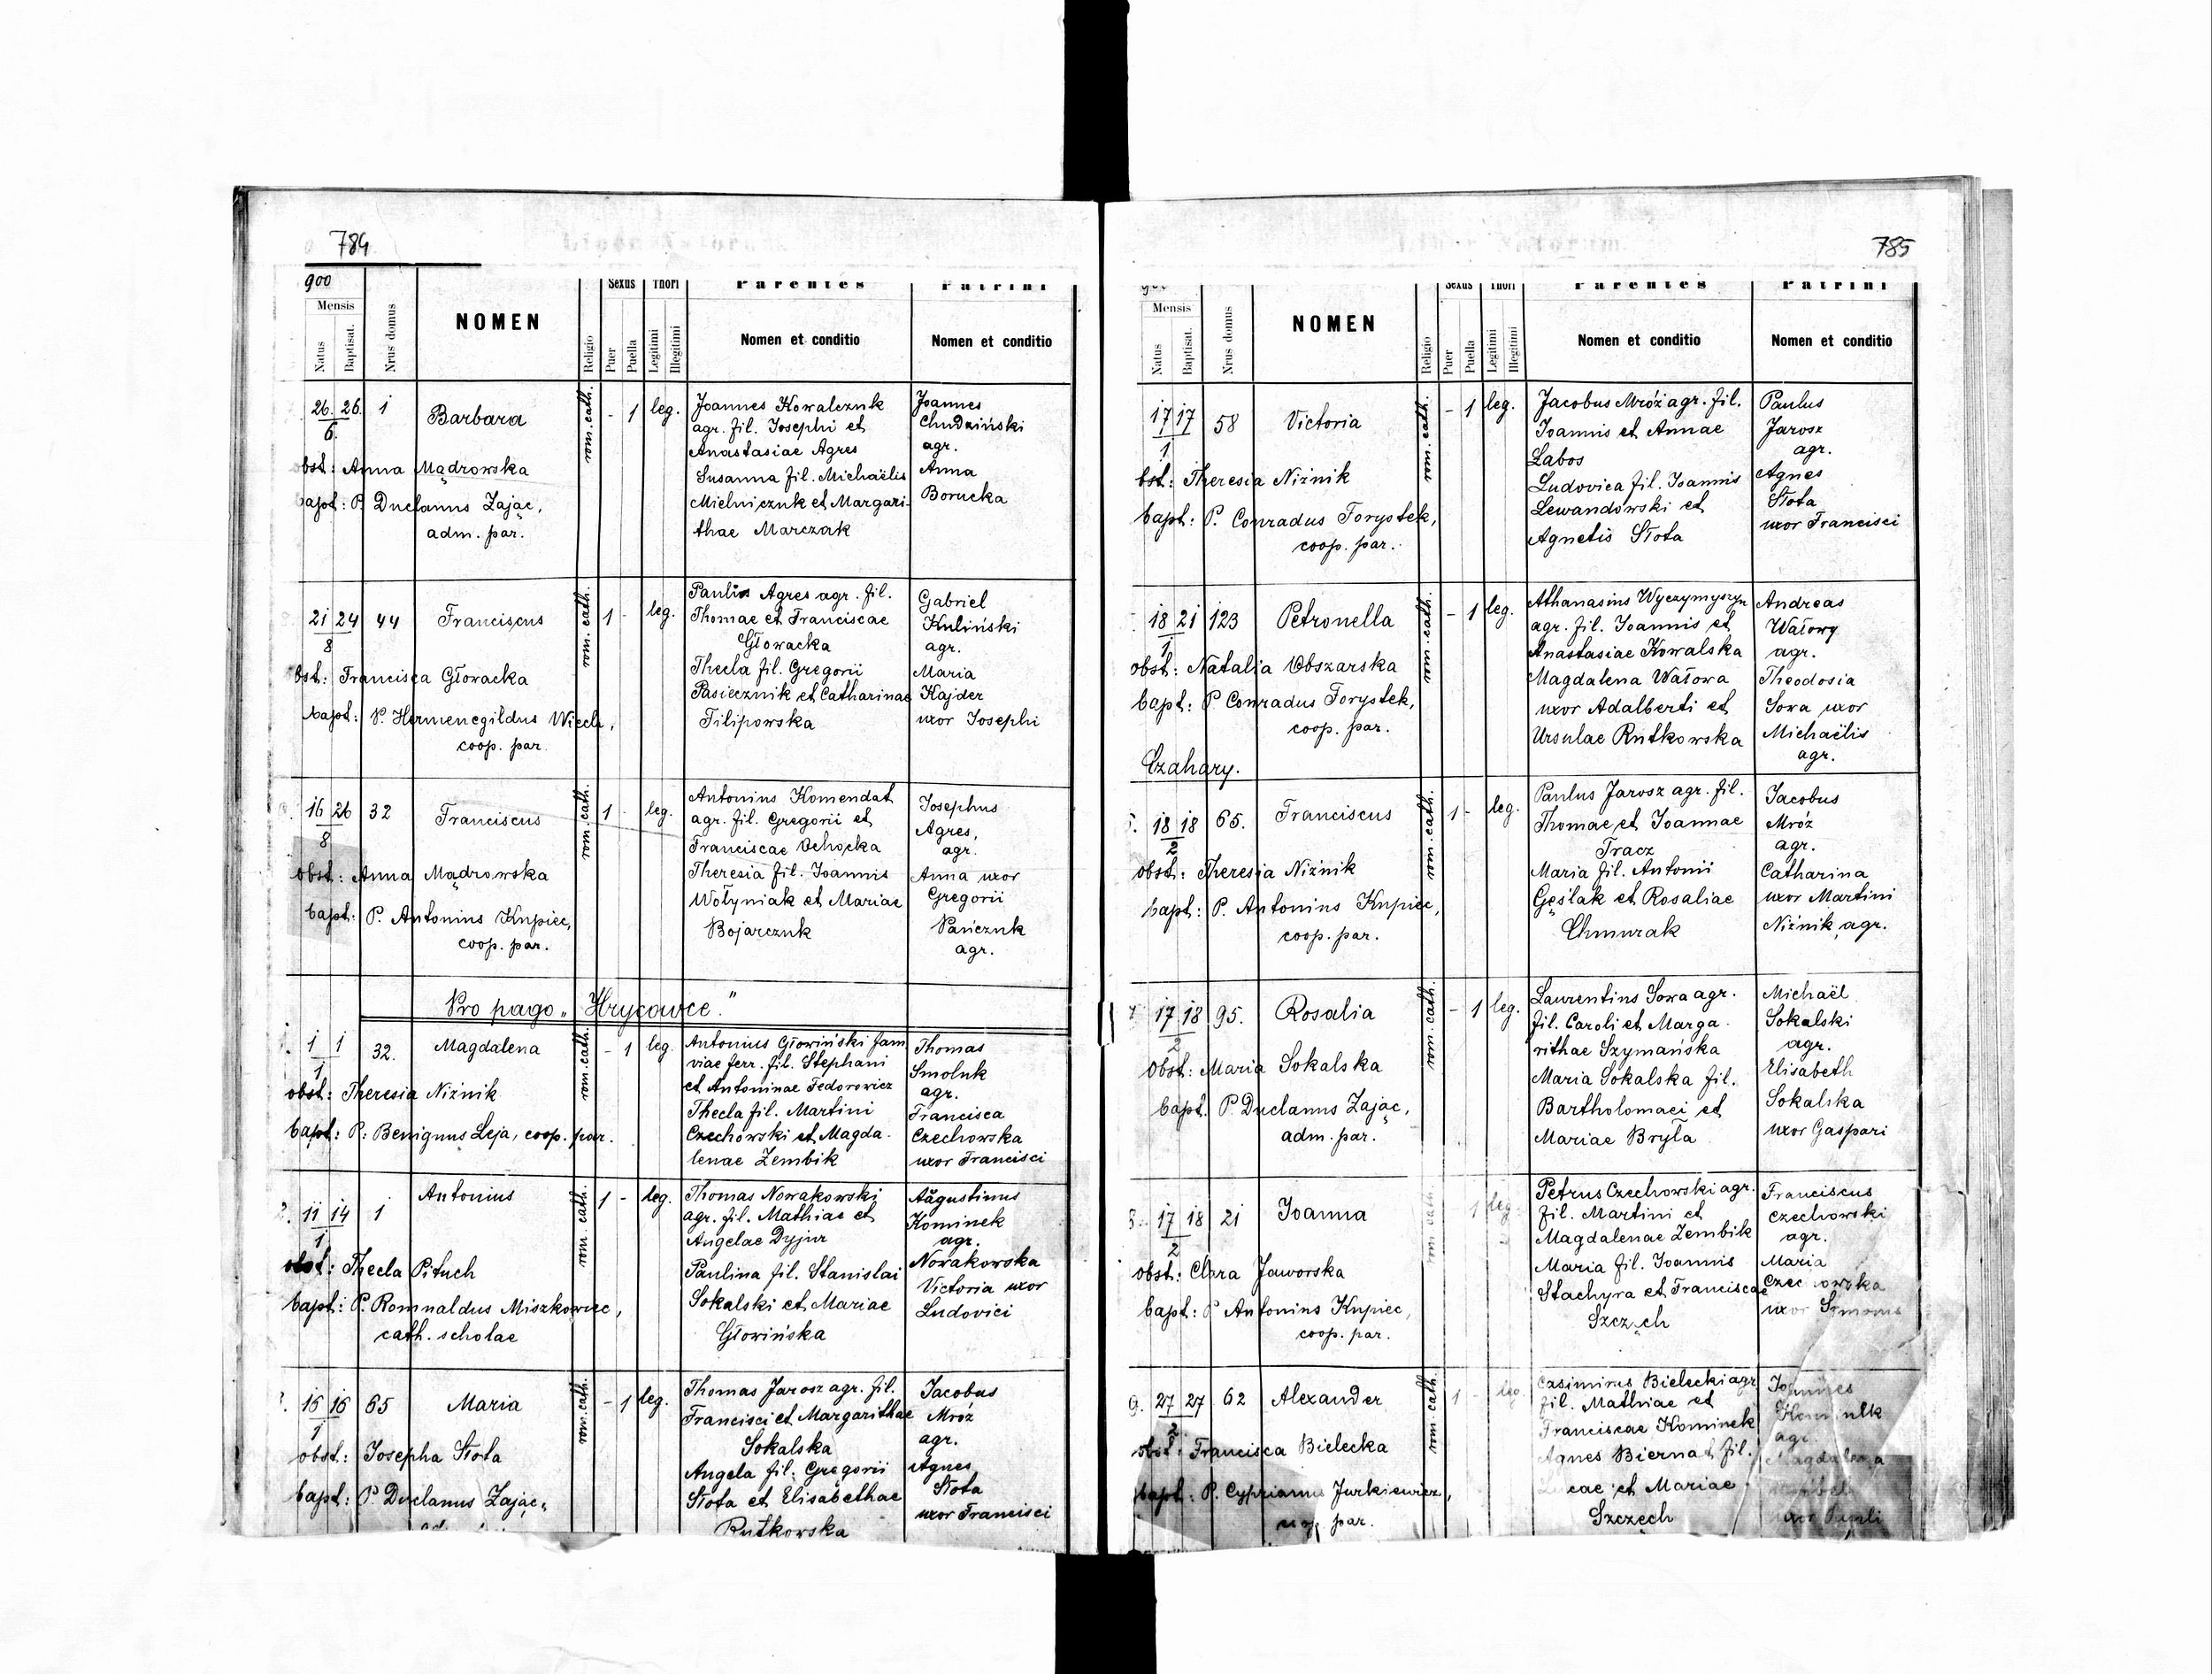 784
900
Sexus Thori Parentes Patrini
Mensis
Natus Baptisat. Nrus domus NOMEN Religio Puer Puella Legitimi Illegitimi Nomen et conditio Nomen et conditio
26. 26. 1 Barbara rom. cath. - 1 leg.
6.
obst: Anna Mądrowska
bapt: P. Duclanus Zając,
adm. par.
Joannes Kowalczuk
agr. fil. Josephi et
Anastasiae Agres
Susanna fil. Michaëlis
Mielniczuk et Margari-
thae Marczak
Joannes
Chudziński
agr.
Anna
Borucka
21 24 44 Franciscus rom. cath. 1 - leg.
8
obst: Francisca Głowacka
bapt: P. Hermenegildus Wiech,
coop. par.
Paulus Agres agr. fil.
Thomae et Franciscae
Głowacka
Thecla fil. Gregorii
Pasiecznik et Catharinae
Filipowska
Gabriel
Kuliński
agr.
Maria
Kajder
uxor Josephi
16 26 32 Franciscus rom. cath. 1 - leg.
8
obst: Anna Mądrowska
bapt: P. Antonius Kupiec,
coop. par.
Antonius Komendat
agr. fil. Gregorii et
Franciscae Ochocka
Theresia fil. Joannis
Wołyniak et Mariae
Bojarczuk
Josephus
Agres,
agr.
Anna uxor
Gregorii
Pańczuk
agr.
Pro pago „Hrycowce"
1 1 32. Magdalena rom. cath. - 1 leg.
1
obst: Theresia Niżnik
bapt: P. Benignus Leja, coop. par.
Antonius Głowiński fam.
viae ferr. fil. Stephani
et Antoninae Fedorowicz
Thecla fil. Martini
Czechowski et Magda-
lenae Zembik
Thomas
Smoluk
agr.
Francisca
Czechowska
uxor Francisci
2. 11 14 1 Antonius rom. cath. 1 - leg.
1
obst: Thecla Pituch
bapt: P. Romualdus Miszkowiec,
cath. scholae
Thomas Nowakowski
agr. fil. Mathiae et
Angelae Dyjur
Paulina fil. Stanislai
Sokalski et Mariae
Głowińska
Augustinus
Kominek
agr.
Nowakowska
Victoria uxor
Ludovici
16 16 65 Maria rom. cath. - 1 leg.
1
obst: Josepha Słota
bapt: P. Duclanus Zając,
Thomas Jarosz agr. fil.
Francisci et Margarithae
Sokalska
Angela fil. Gregorii
Słota et Elisabethae
Rutkowska
Jacobus
Mróz
agr.
Agnes
Słota
uxor Francisci
785
900
Sexus Thori Parentes Patrini
Mensis
Natus Baptisat. Nrus domus NOMEN Religio Puer Puella Legitimi Illegitimi Nomen et conditio Nomen et conditio
17 17 58 Victoria rom. cath. - 1 leg.
1
obst: Theresia Niżnik
bapt: P. Conradus Forystek,
coop. par.
Jacobus Mróz agr. fil.
Joannis et Annae
Labos
Ludovica fil. Joannis
Lewandowski et
Agnetis Słota
Paulus
Jarosz
agr.
Agnes
Słota
uxor Francisci
18 21 123 Petronella rom. cath. - 1 leg.
1
obst: Natalia Obszarska
bapt: P. Conradus Forystek,
coop. par.
Athanasius Wyczymyszyn
agr. fil. Joannis et
Anastasiae Kowalska
Magdalena Wałowa
uxor Adalberti et
Ursulae Rutkowska
Andreas
Wałowy
agr.
Theodosia
Sowa uxor
Michaëlis
agr.
Czahary.
18 18 65. Franciscus rom. cath. 1 - leg.
2
obst: Theresia Niżnik
bapt: P. Antonius Kupiec,
coop. par.
Paulus Jarosz agr. fil.
Thomae et Joannae
Tracz
Maria fil. Antonii
Gęślak et Rosaliae
Chmurak
Jacobus
Mróz
agr.
Catharina
uxor Martini
Niżnik, agr.
17 18 95. Rosalia rom. cath. - 1 leg.
2
obst: Maria Sokalska
bapt. P. Duclanus Zając,
adm. par.
Laurentius Sowa agr.
fil. Caroli et Marga-
rithae Szymańska
Maria Sokalska fil.
Bartholomaei et
Mariae Bryła
Michaël
Sokalski
agr.
Elisabeth
Sokalska
uxor Gaspari
8. 17 18 21 Joanna rom. cath. 1 leg.
2
obst: Clara Jaworska
bapt: P. Antonius Kupiec,
coop. par.
Petrus Czechowski agr.
fil. Martini et
Magdalenae Zembik
Maria fil. Joannis
Stachyra et Franciscae
Szczęch
Franciscus
Czechowski
agr.
Maria
Czechowska
uxor Simonis
9. 27 27 62 Alexander rom. cath. 1 - leg.
2
obst: Francisca Bielecka
bapt: P. Cyprianus Jurkiewicz,
coop. par.
Casimirus Bielecki agr.
fil. Mathiae et
Franciscae Kominek
Agnes Biernat fil.
Lucae et Mariae
Szczęch
Joannes
agr.
Magdalena
uxor Pauli